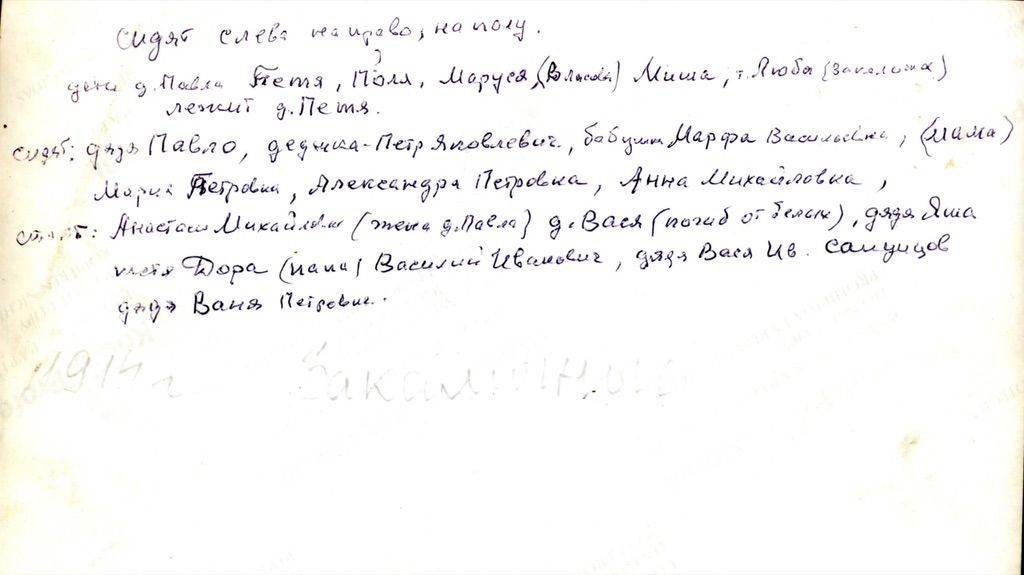 сидят слева на право, на полу.
дети д. Павла Петя, Поля, Маруся, (Власова) Миша, т. Люба
лежит д. Петя.
сидят: дядя Павло, дедушка-Петр Яковлевич, бабушка Марфа Васильевна, (мама)
Мария Петровна, Александра Петровна, Анна Михайловна,
стоят: Анастасия Михайловна (жена д. Павла) д. Вася (погиб от белых), дядя Яша
тетя Дора (папа) Василий Иванович, дядя Вася Ив.
дядя Ваня Петрович.
1914 г